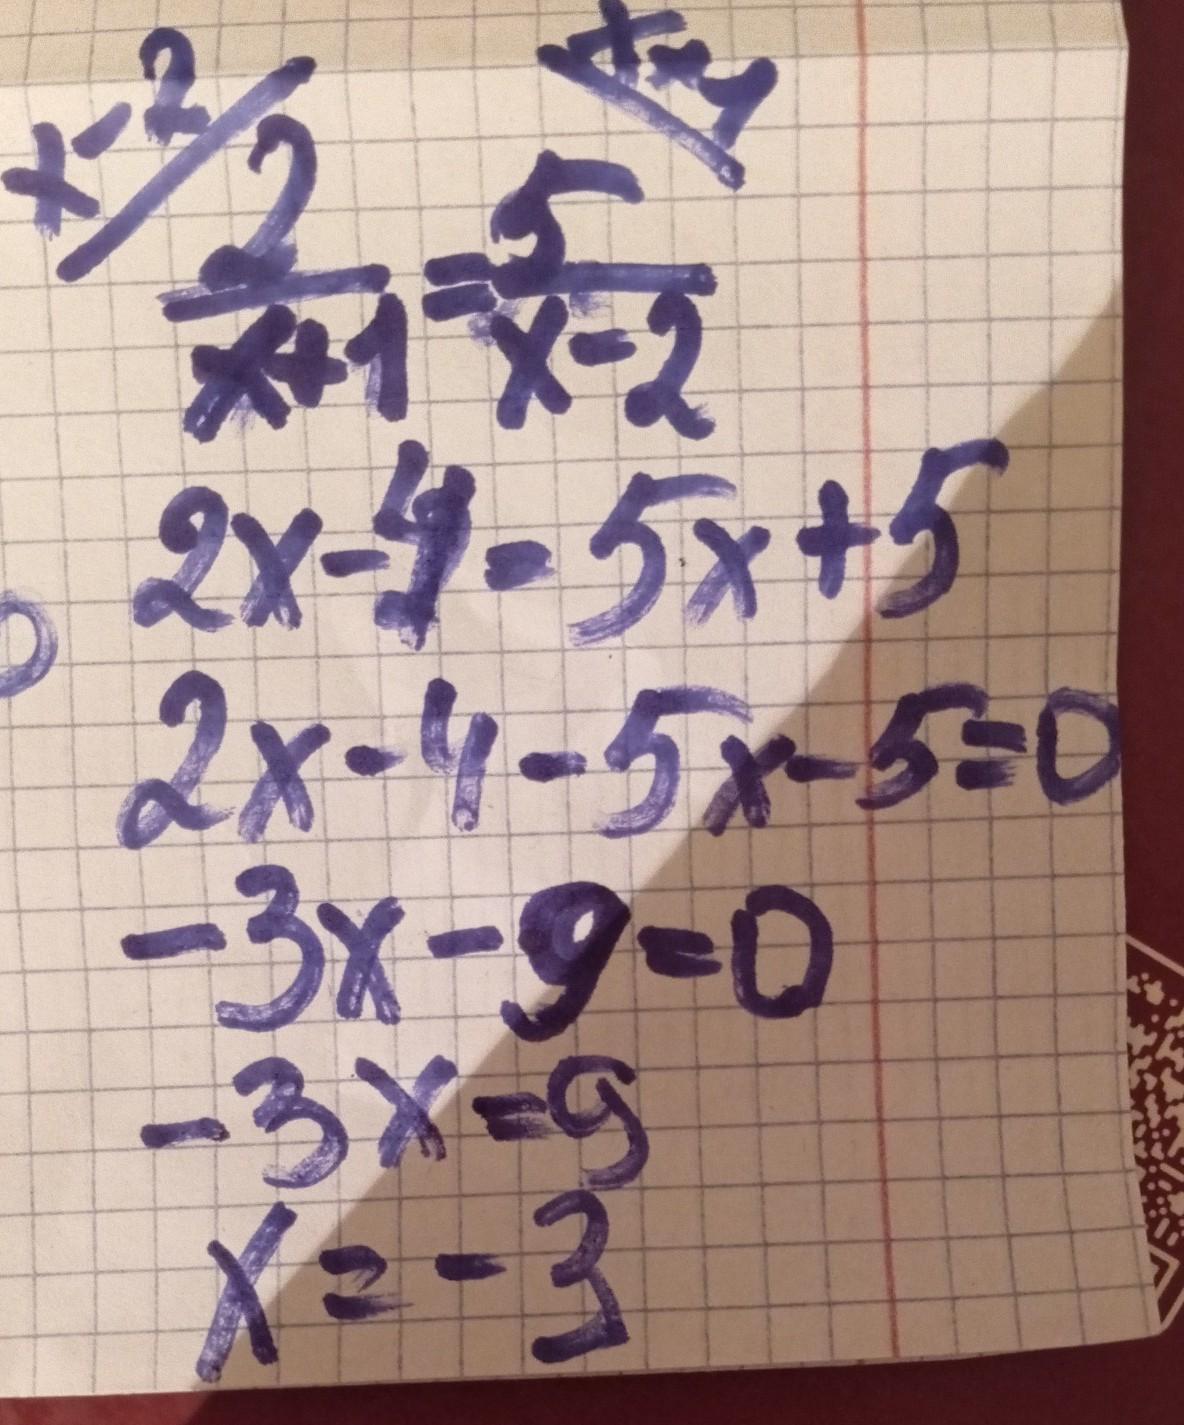 x-2 x+1
2/(x+1) = 5/(x-2)
2x-4=5x+5
2x-4-5x-5=0
-3x-9=0
-3x=9
x=-3